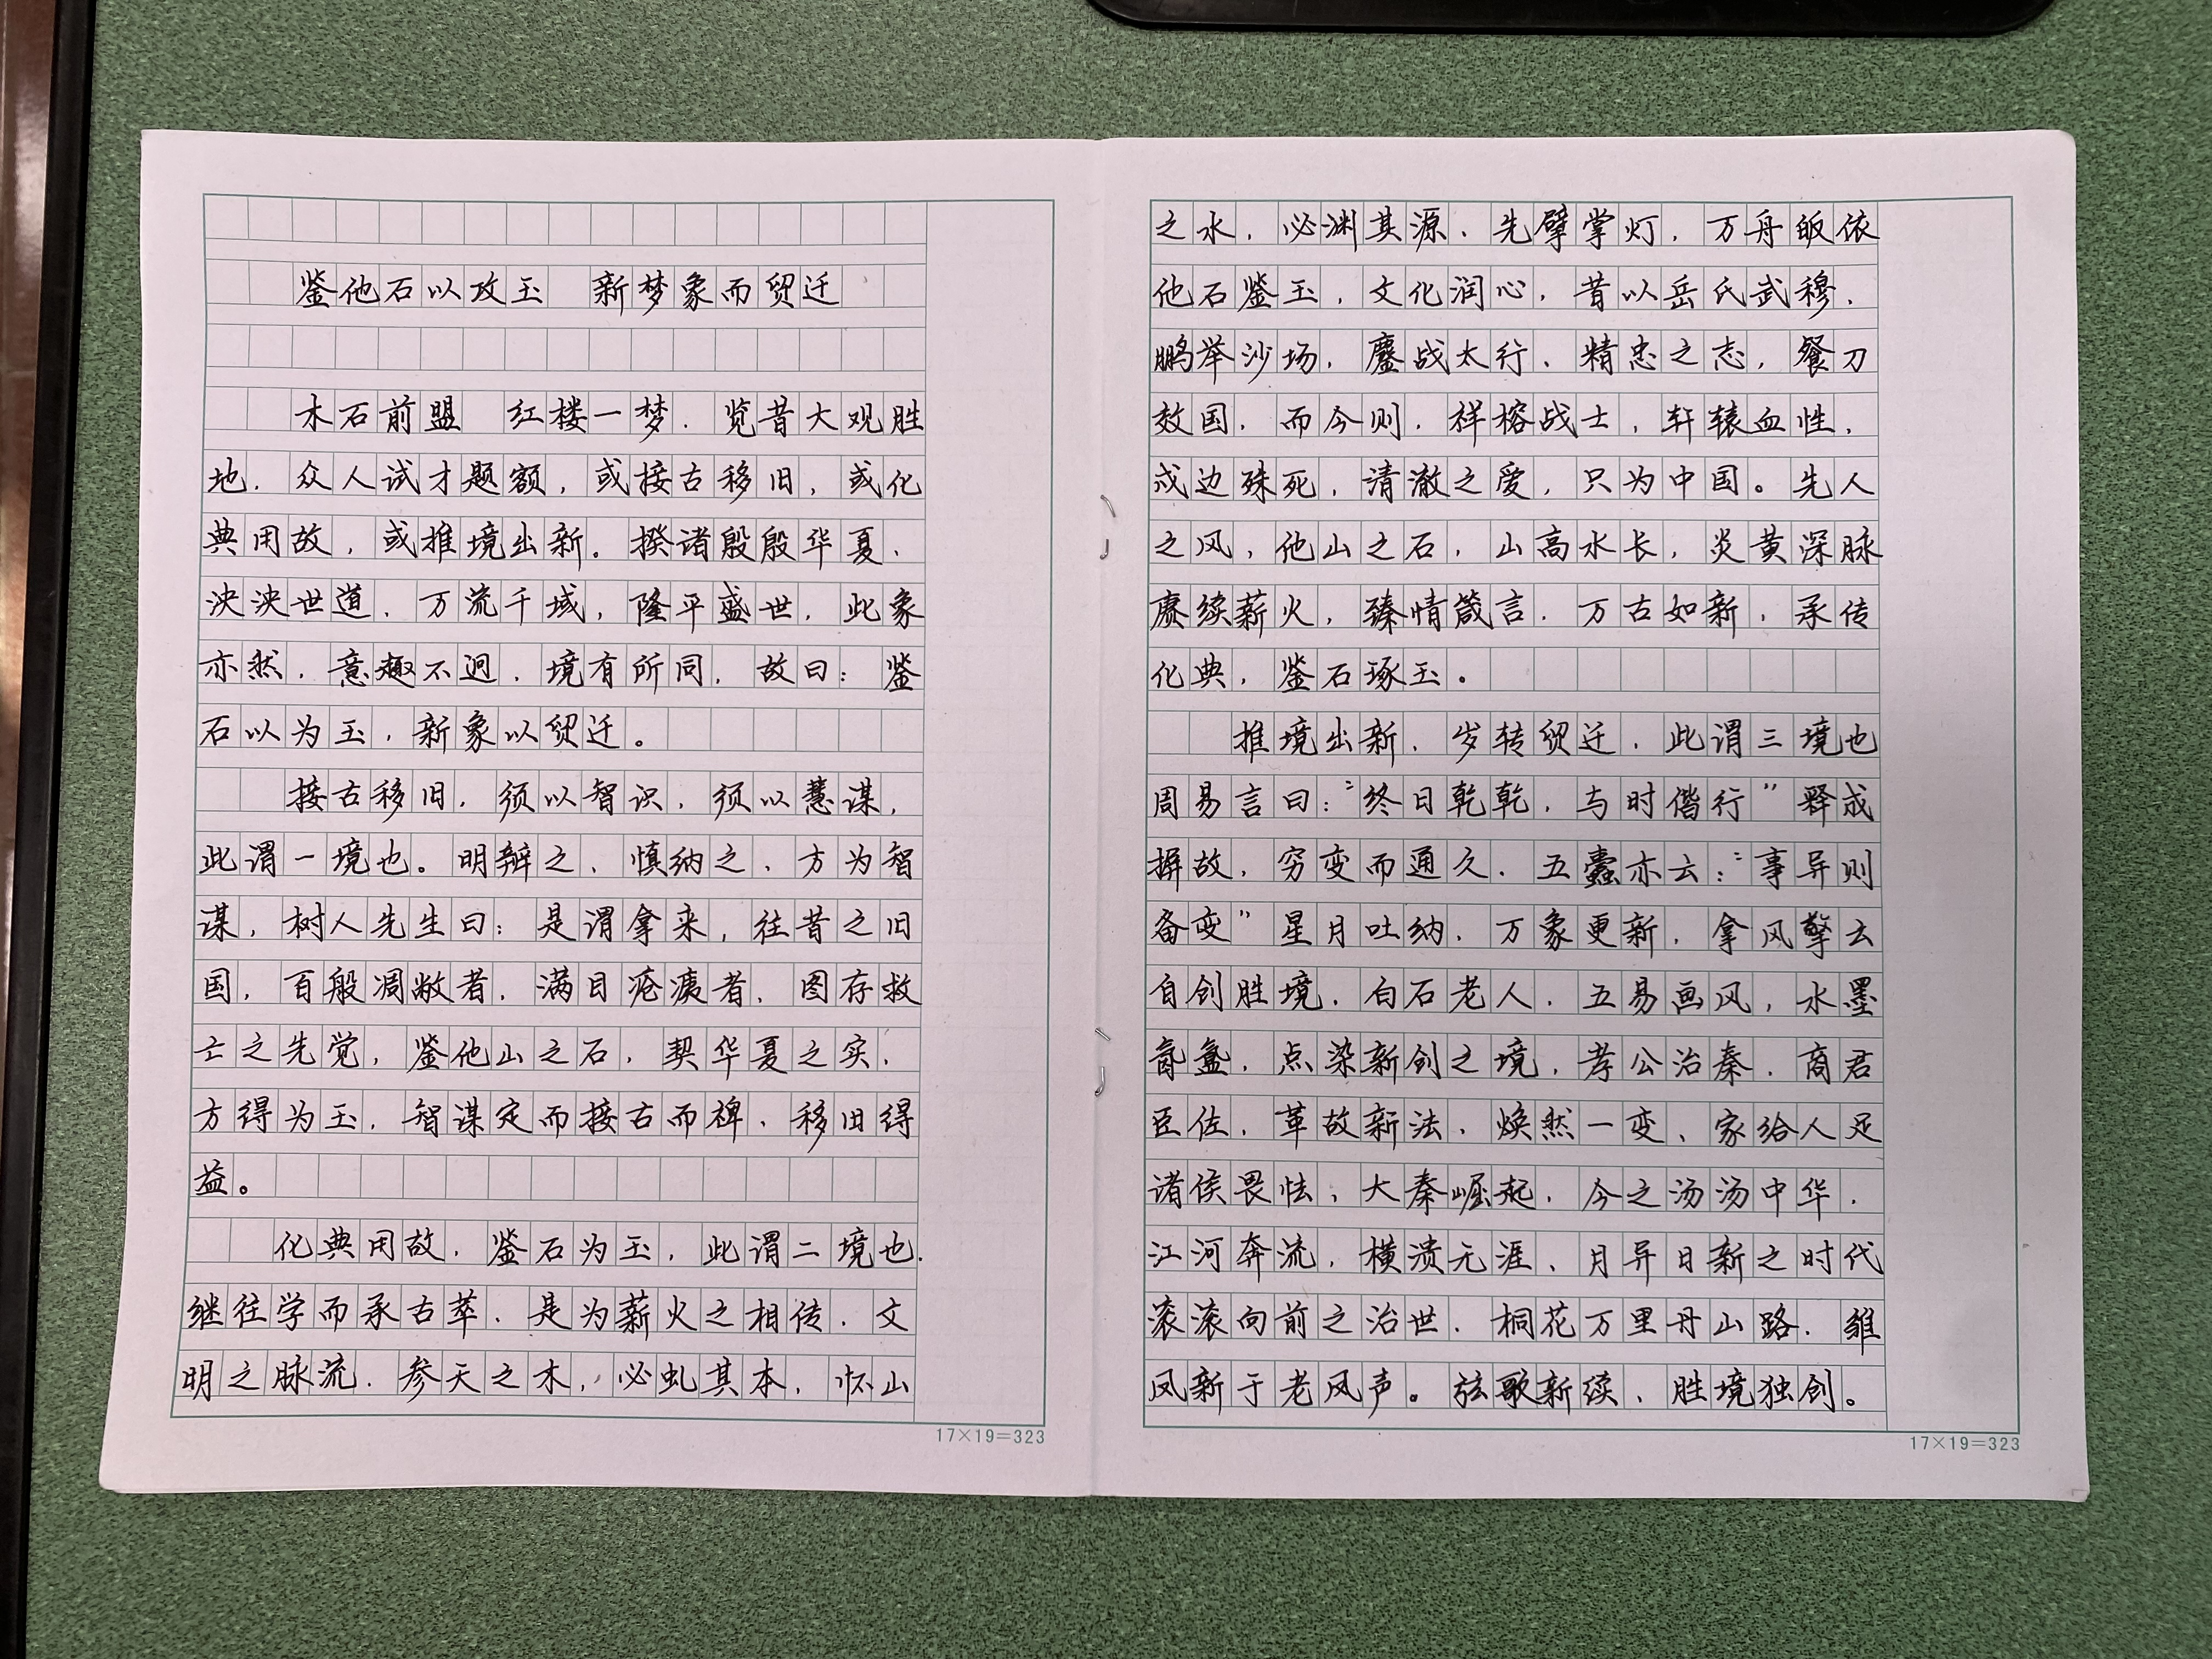 鉴他石以攻玉 新梦象而贸迁
木石前盟 红楼一梦．览昔大观胜
地．众人试才题额，或接古移旧，或化
典用故，或推境出新。揆诸殷殷华夏．
泱泱世道．万流千域，隆平盛世．此象
亦然．意趣不迥．境有所同，故曰：鉴
石以为玉，新象以贸迁。
接古移旧，须以智识，须以慧谋，
此谓一境也。明辩之、慎纳之、方为智
谋，树人先生曰：是谓拿来，往昔之旧
国，百般凋敝者．满目疮痍者．图存救
亡之先觉，鉴他山之石，契华夏之实．
方得为玉，智谋定而接古而裨．移旧得
益。
化典用故．鉴石为玉，此谓二境也．
继往学而承古萃．是为薪火之相传．文
明之脉流．参天之木，必虬其本，怀山
之水．必渊其源．先擘掌灯．万舟皈依
他石鉴玉，文化润心，昔以岳氏武穆．
鹏举沙场，鏖战太行．精忠之志，餐刀
效国．而今则．祥榕战士，轩辕血性．
戍边殊死，清澈之爱，只为中国。先人
之风，他山之石，山高水长，炎黄深脉
赓续薪火，臻情箴言．万古如新，承传
化典，鉴石琢玉。
推境出新．岁转贸迁．此谓三境也
周易言曰：“终日乾乾，与时偕行”释成
摒故，穷变而通久．五蠹亦云：“事异则
备变”星月吐纳．万象更新．拿风擎云
自创胜境．白石老人．五易画风，水墨
氤氲．点染新创之境，孝公治秦．商君
臣佐．革故新法．焕然一变、家给人足
诸侯畏怯，大秦崛起．今之汤汤中华．
江河奔流，横溃无涯、月异日新之时代
滚滚向前之治世．桐花万里丹山路．雏
凤新于老凤声。弦歌新续、胜境独创。
17×19=323
17×19=323